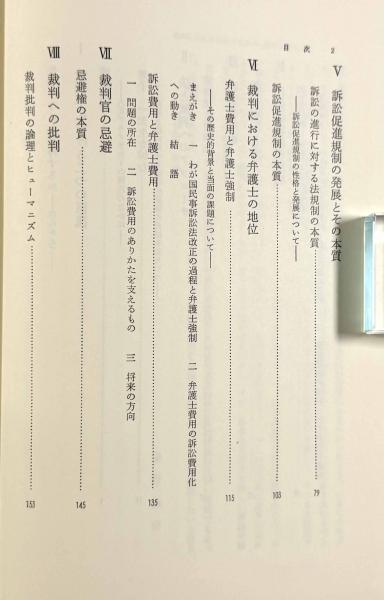 目次 2
Ⅴ 訴訟促進規制の発展とその本質
訴訟の進行に対する法規制の本質……………79
――訴訟促進規制の性格と発展について――
訴訟促進規制の本質……………103
Ⅵ 裁判における弁護士の地位
弁護士費用と弁護士強制……………115
――その歴史的背景と当面の課題について――
まえがき 一 わが国民事訴訟法改正の過程と弁護士強制 二 弁護士費用の訴訟費用化
への動き 結語
訴訟費用と弁護士費用……………135
一 問題の所在 二 訴訟費用のありかたを支えるもの 三 将来の方向
Ⅶ 裁判官の忌避
忌避権の本質……………145
Ⅷ 裁判への批判
裁判批判の論理とヒューマニズム……………153